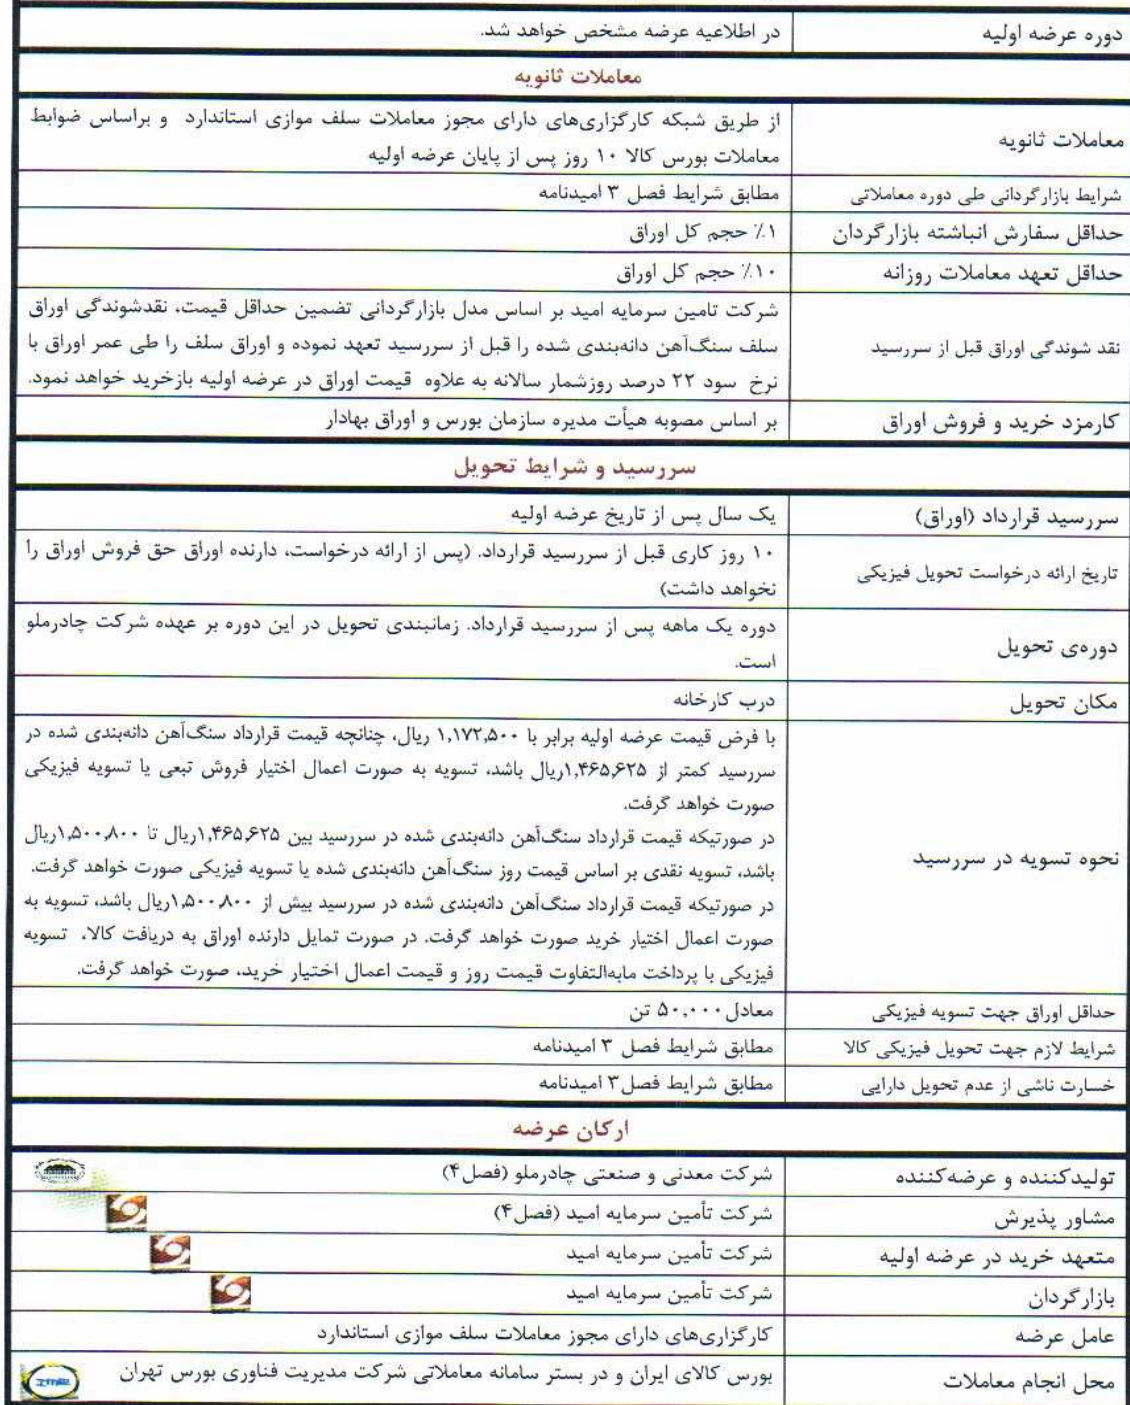 دوره عرضه اولیه
در اطلاعیه عرضه مشخص خواهد شد.
معاملات ثانویه
معاملات ثانویه
از طریق شبکه کارگزاری‌های دارای مجوز معاملات سلف موازی استاندارد و براساس ضوابط
معاملات بورس کالا ۱۰ روز پس از پایان عرضه اولیه
شرایط بازارگردانی طی دوره معاملاتی
مطابق شرایط فصل ۳ امیدنامه
حداقل سفارش انباشته بازارگردان
۱٪ حجم کل اوراق
حداقل تعهد معاملات روزانه
۱۰٪ حجم کل اوراق
نقد شوندگی اوراق قبل از سررسید
شرکت تامین سرمایه امید بر اساس مدل بازارگردانی تضمین حداقل قیمت، نقدشوندگی اوراق
سلف سنگ‌آهن دانه‌بندی شده را قبل از سررسید تعهد نموده و اوراق سلف را طی عمر اوراق با
نرخ سود ۲۲ درصد روزشمار سالانه به علاوه قیمت اوراق در عرضه اولیه بازخرید خواهد نمود.
کارمزد خرید و فروش اوراق
بر اساس مصوبه هیأت مدیره سازمان بورس و اوراق بهادار
سررسید و شرایط تحویل
سررسید قرارداد (اوراق)
یک سال پس از تاریخ عرضه اولیه
تاریخ ارائه درخواست تحویل فیزیکی
۱۰ روز کاری قبل از سررسید قرارداد. (پس از ارائه درخواست، دارنده اوراق حق فروش اوراق را
نخواهد داشت)
دوره‌ی تحویل
دوره یک ماهه پس از سررسید قرارداد. زمانبندی تحویل در این دوره بر عهده شرکت چادرملو
است.
مکان تحویل
درب کارخانه
نحوه تسویه در سررسید
با فرض قیمت عرضه اولیه برابر با ۱,۱۷۲,۵۰۰ ریال، چنانچه قیمت قرارداد سنگ‌آهن دانه‌بندی شده در
سررسید کمتر از ۱,۴۶۵,۶۲۵ریال باشد، تسویه به صورت اعمال اختیار فروش تبعی یا تسویه فیزیکی
صورت خواهد گرفت.
در صورتیکه قیمت قرارداد سنگ‌آهن دانه‌بندی شده در سررسید بین ۱,۴۶۵,۶۲۵ریال تا ۱,۵۰۰,۸۰۰ریال
باشد، تسویه نقدی بر اساس قیمت روز سنگ‌آهن دانه‌بندی شده یا تسویه فیزیکی صورت خواهد گرفت.
در صورتیکه قیمت قرارداد سنگ‌آهن دانه‌بندی شده در سررسید بیش از ۱,۵۰۰,۸۰۰ریال باشد، تسویه به
صورت اعمال اختیار خرید صورت خواهد گرفت. در صورت تمایل دارنده اوراق به دریافت کالا، تسویه
فیزیکی با پرداخت مابه‌التفاوت قیمت روز و قیمت اعمال اختیار خرید، صورت خواهد گرفت.
حداقل اوراق جهت تسویه فیزیکی
معادل ۵۰,۰۰۰ تن
شرایط لازم جهت تحویل فیزیکی کالا
مطابق شرایط فصل ۳ امیدنامه
خسارت ناشی از عدم تحویل دارایی
مطابق شرایط فصل۳ امیدنامه
ارکان عرضه
تولیدکننده و عرضه‌کننده
شرکت معدنی و صنعتی چادرملو (فصل۴)
مشاور پذیرش
شرکت تأمین سرمایه امید (فصل۴)
متعهد خرید در عرضه اولیه
شرکت تأمین سرمایه امید
بازارگردان
شرکت تأمین سرمایه امید
عامل عرضه
کارگزاری‌های دارای مجوز معاملات سلف موازی استاندارد
محل انجام معاملات
بورس کالای ایران و در بستر سامانه معاملاتی شرکت مدیریت فناوری بورس تهران